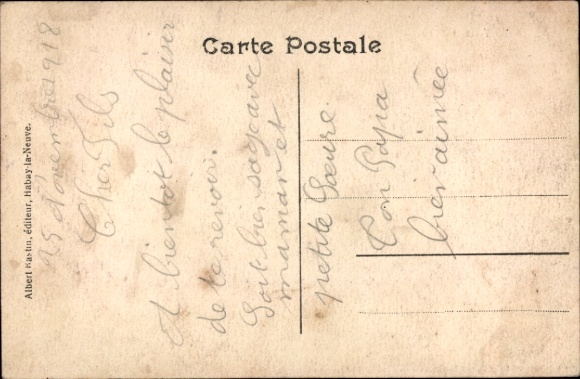 Carte Postale
Albert Kaslin, éditeur, Habay-la-Neuve.
25 Novembre 1918
Cher Fils
A bientot le plaisir
de te revoir.
Soit bien sage avec
maman et
petite Sœure
Ton Papa
bien aimée